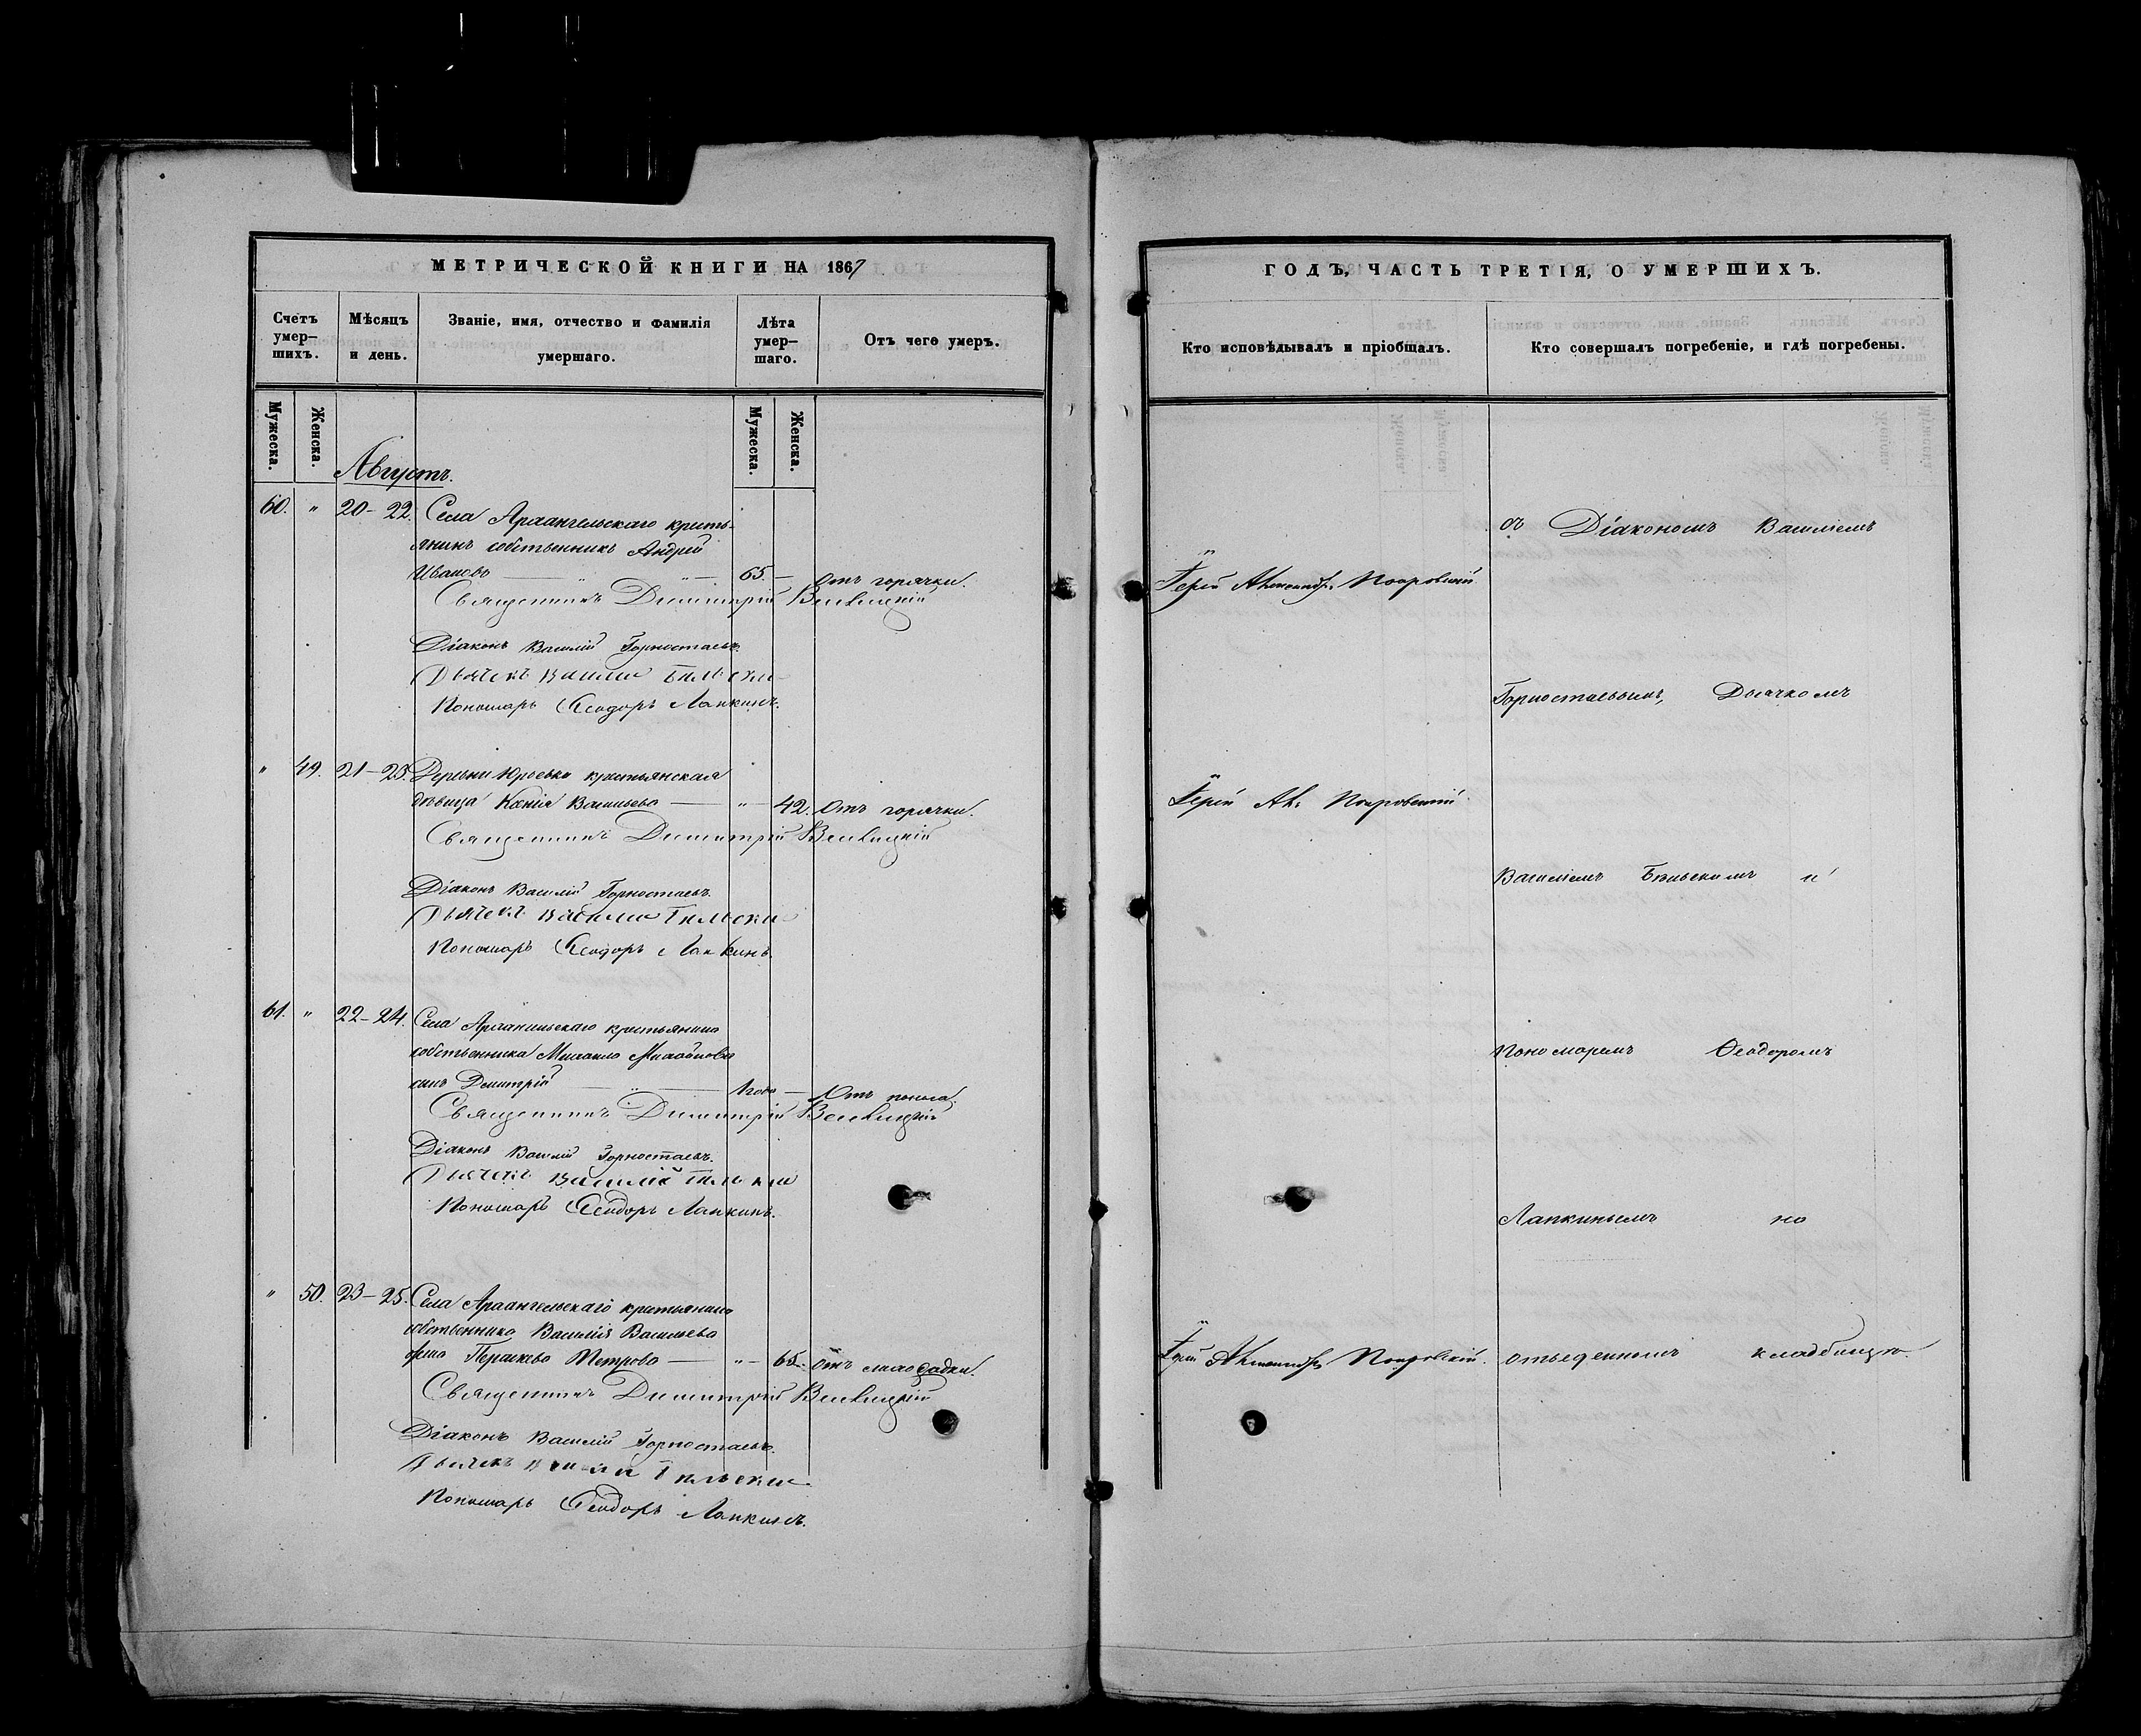 МЕТРИЧЕСКОЙ КНИГИ НА 1867
Счетъ умер-шихъ.
Мѣсяцъ и день.
Званіе, имя, отчество и фамилія умершаго.
Лѣта умер-шаго.
Отъ чего умеръ.
Мужеска.
Женска.
Мужеска.
Женска.
Августъ.
60. " 20-22. Села Архангельскаго кресть-
янинъ собственникъ Андрей
Ивановъ — " — " — 65. — Отъ горячки.
Священникъ Димитрій
Діаконъ Василій Горностаевъ.
Дьячекъ Василій Бѣльскій
Пономарь Ѳеодоръ Лапкинъ.
" 49. 21-23. Деревни Юрьевки крестьянская
дѣвица Ксенія Васильева — " — 42. Отъ горячки.
Священникъ Димитрій
Діаконъ Василій Горностаевъ.
Дьячекъ Василій Бѣльскій
Пономарь Ѳеодоръ Лапкинъ.
61. " 22-24. Села Архангельскаго крестьянина
собственника Михаила Михайлова
сынъ Димитрій — " — 1 года — Отъ поноса.
Священникъ Димитрій
Діаконъ Василій Горностаевъ.
Дьячекъ Василій Бѣльскій
Пономарь Ѳеодоръ Лапкинъ.
" 50. 23-25. Села Архангельскаго крестьянина
собственника Василія Васильева
жена Параскева Петрова — " — 65. Отъ лихорадки.
Священникъ Димитрій
Діаконъ Василій Горностаевъ.
Дьячекъ Василій Бѣльскій
Пономарь Ѳеодоръ Лапкинъ.
ГОДЪ, ЧАСТЬ ТРЕТІЯ, О УМЕРШИХЪ.
Кто исповѣдывалъ и пріобщалъ.
Кто совершалъ погребеніе, и гдѣ погребены.
Іерей Александръ Покровскій
Іерей Ал: Покровскій
Іерей Александръ Покровскій.
съ Діакономъ Василіемъ
Горностаевымъ, Дьячкомъ
Василіемъ Бѣльскимъ и
Пономаремъ Ѳеодоромъ
Лапкинымъ на
отведенномъ кладбищѣ.